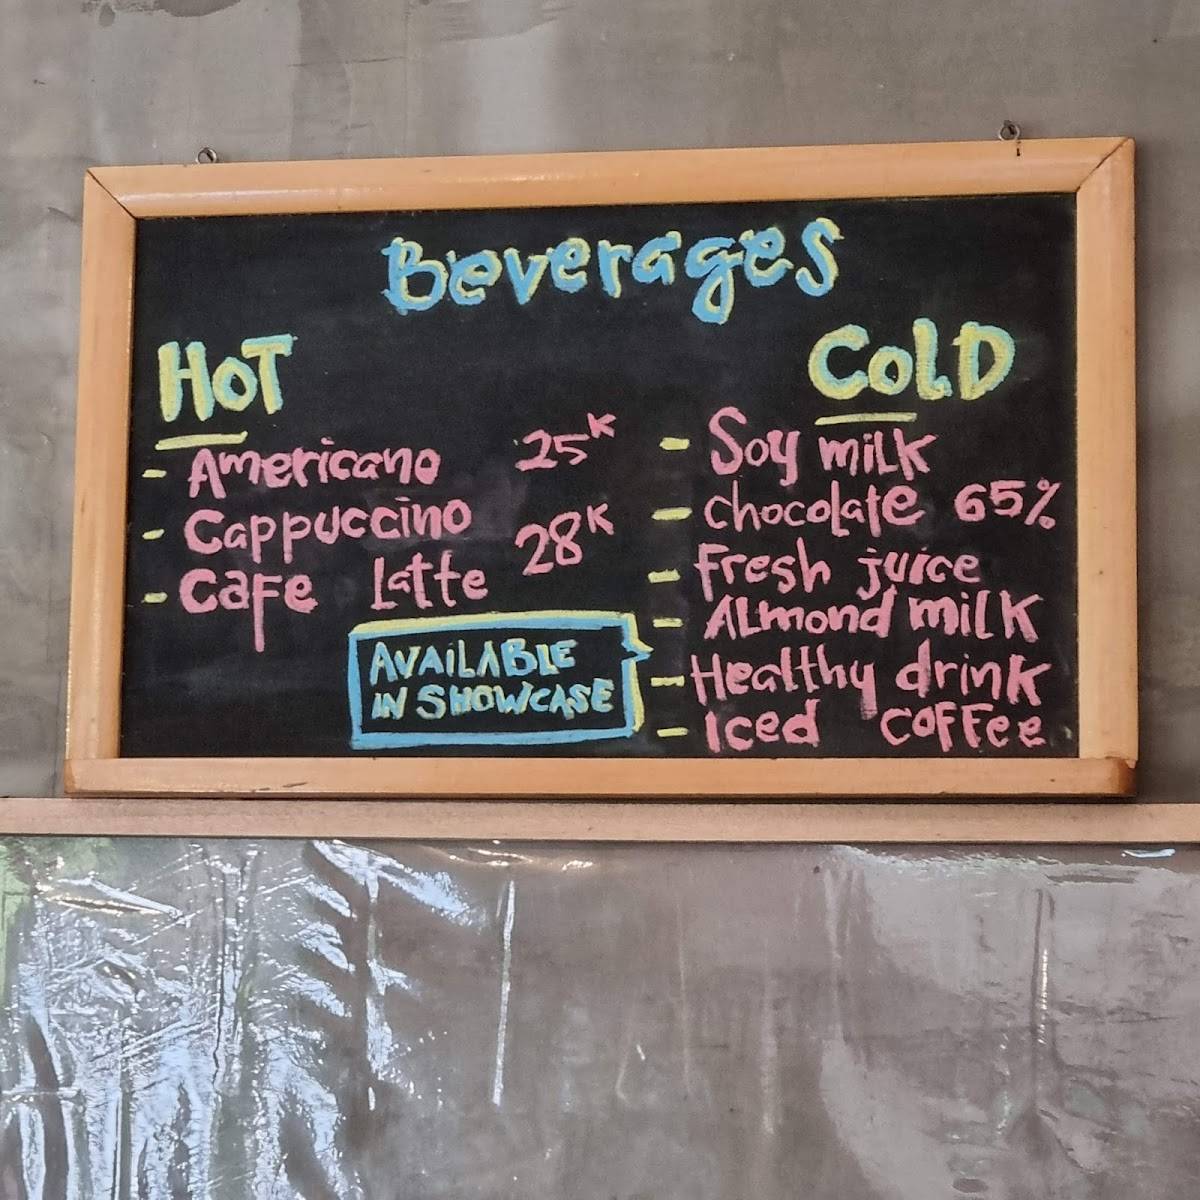 Beverages
HOT
- Americano 25K
- Cappuccino 28K
- Cafe Latte
AVAILABLE
IN SHOWCASE
COLD
- Soy milk
- chocolate 65%
- Fresh juice
- ALmond milk
- Healthy drink
- Iced COFFee